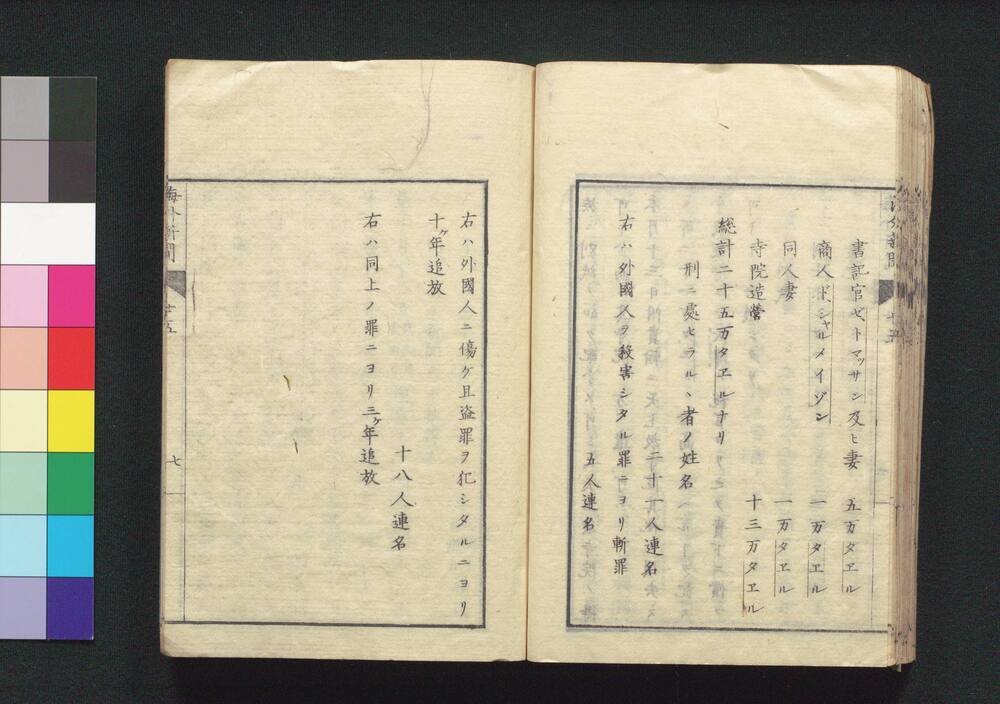 書記官ゼ、トマッサン及ヒ妻　五万タヱル
商人ド、シャルメイゾン　一万タヱル
同人妻　一万タヱル
寺院造營　十三万タヱル
総計二十五万タヱルナリ
刑ニ處セラル丶者ノ姓名
二十一人連名
右ハ外國人ヲ殺害シタル罪ニヨリ斬罪
五人連名
右ハ外國人ニ傷ケ且盗罪ヲ犯シタルニヨリ
十ケ年追放
十八人連名
右ハ同上ノ罪ニヨリ三ケ年追放
海外新聞
廿五
七